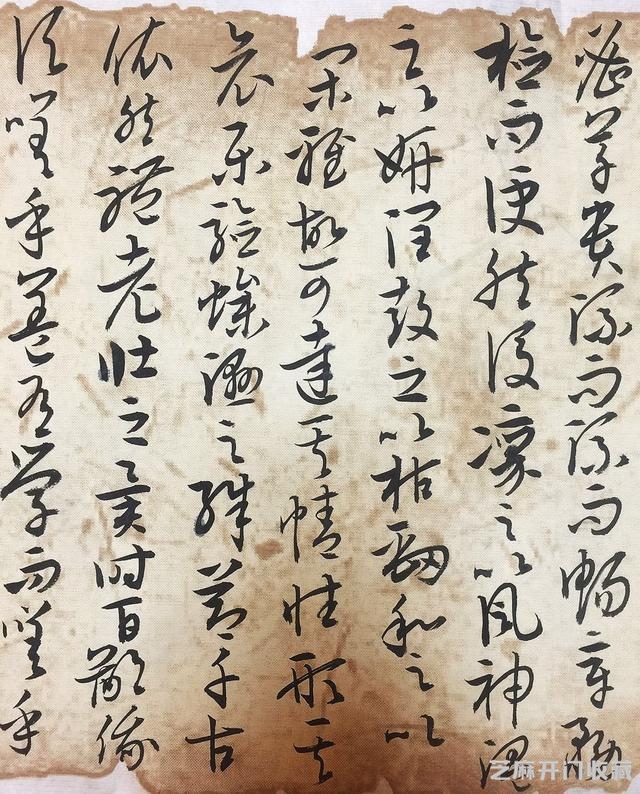 密草貴流而流而暢章務
檢而便然後凜之以風神溫
之以妍潤鼓之以枯勁和之以
閑雅故可達其情性形其
哀樂驗燥濕之殊節千古
依然體老壯之異時百齡俄
頃嗟乎蓋有學而嗟乎
芝麻开门收藏